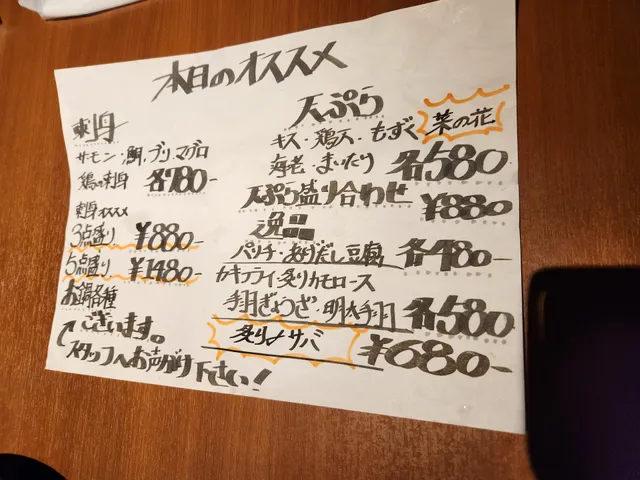 本日のオススメ
刺身
サーモン・鯛・ブリ・マグロ
鶏の刺身 各780-
刺身オススメ
3点盛り ¥880-
5点盛り ¥1480-
お鍋各種
ございます。
スタッフへお声がけ下さい!
天ぷら
キス・鶏天・もずく 菜の花
海老 まいたけ 各580
天ぷら盛り合わせ ¥880
逸品
パリチー・あげだし豆腐 各480-
カキフライ 炙りカモロース
手羽ぎょうざ・明太手羽 各580
炙り〆サバ ¥680-